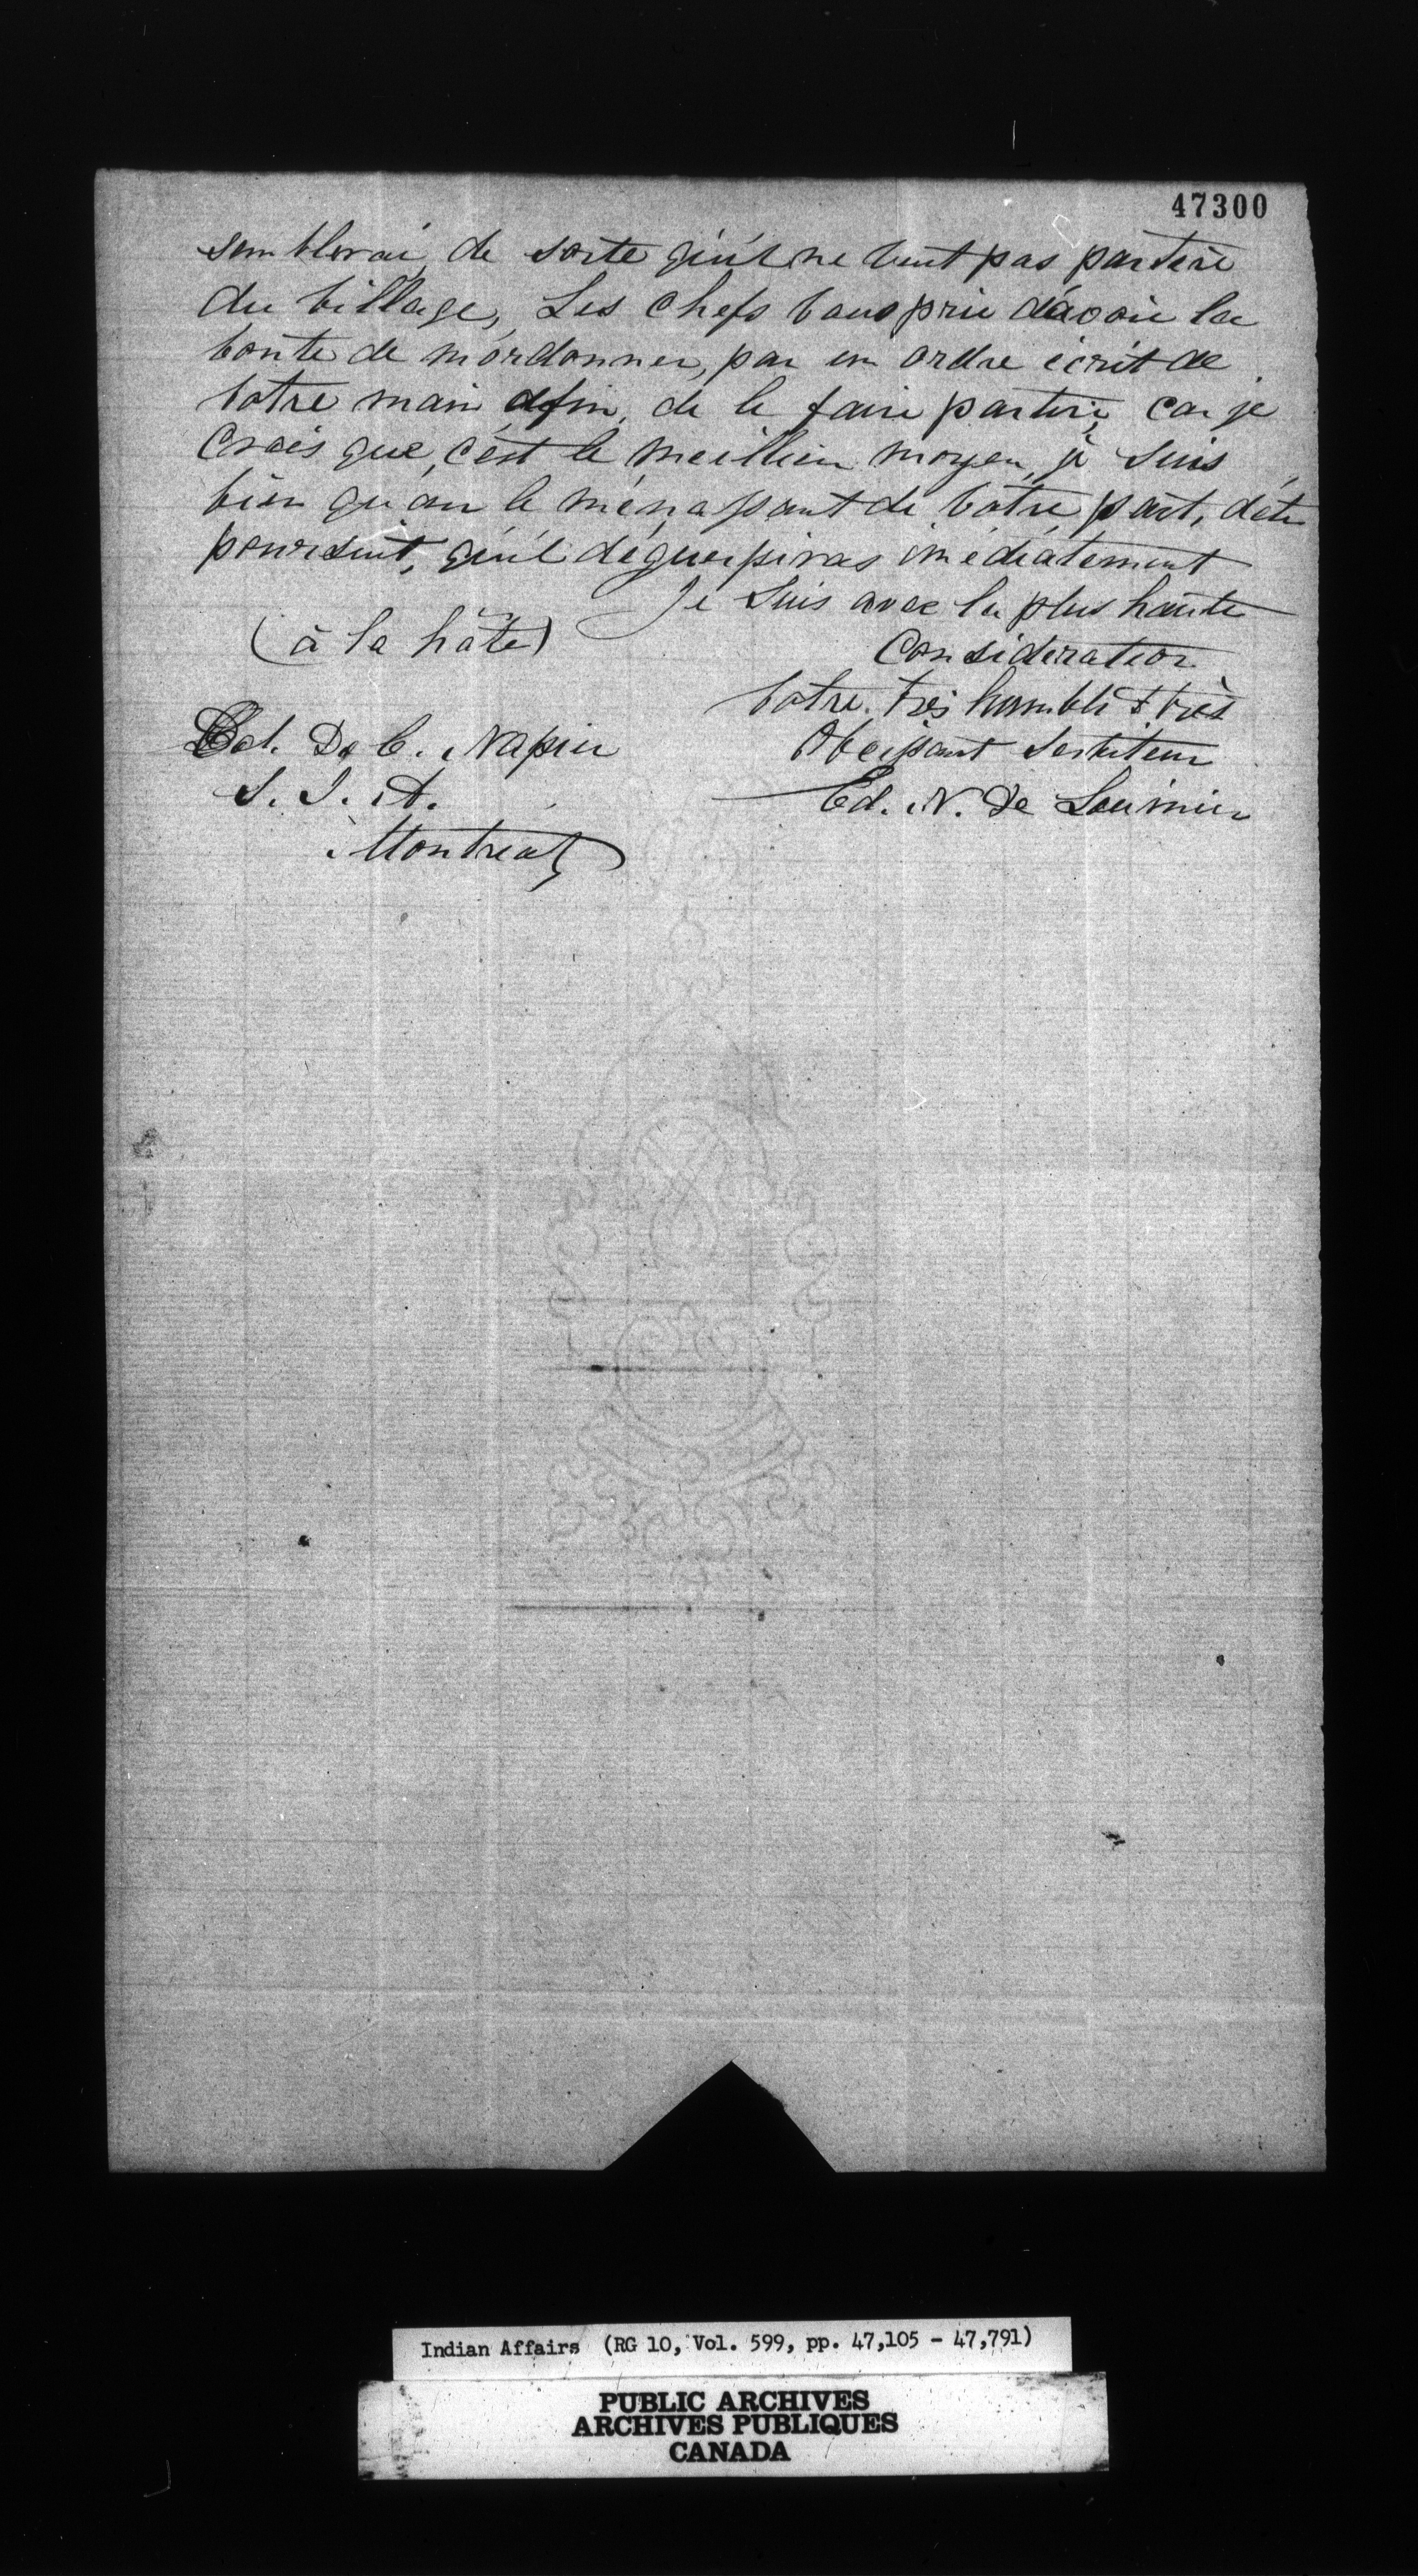 47300
semblerai, de sorte qu'il ne veut pas partire
du village, Les Chefs vous prie d'avoir la
bonte de m'ordonner, par un ordre écrit de
votre main afin, de le faire partire, car je
Crois que, c'est le meilleur moyen, je suis
bien qu'an le ménassant de votre part, d'ête
poursuit, qu'il déguerpiras imédiatement
Je suis avec la plus haute
(à la hâte)
Consideration
votre très humble & très
Col. D. C. Napier
Obeissant Serviteur
S. I. A.
Ed. N. De Lorimier
Montreal
Indian Affairs (RG 10, Vol. 599, pp. 47,105 - 47,791)
PUBLIC ARCHIVES
ARCHIVES PUBLIQUES
CANADA